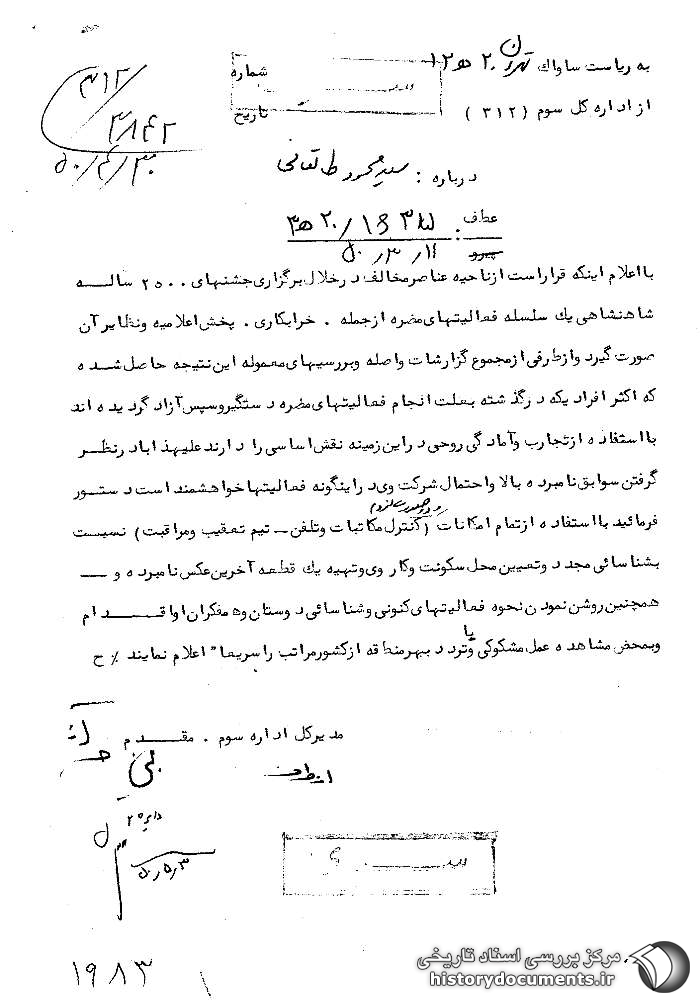 به ریاست ساواك تهران ۲۰ ه ۱۲
شماره
از اداره کل سوم (۳۱۲)
تاریخ
۳۱۲/
۳۸۴۲
۵۰/۴/۳۰
درباره : سید محمود طالقانی
عطف
پیرو
: ۲۰/ ه ۳
۵۰/۳/۱۱
با اعلام اینکه قرار است از ناحیه عناصر مخالف در خلال برگزاری جشنهای ۲۵۰۰ ساله
شاهنشاهی یك سلسله فعالیتهای مضره ازجمله . خرابکاری . پخش اعلامیه ونظایر آن
صورت گیرد واز طرفی از مجموع گزارشات واصله وبررسیهای معموله این نتیجه حاصل شده
که اکثر افرادیکه در گذشته بعلت انجام فعالیتهای مضره دستگیر وسپس آزاد گردیده اند
با استفاده از تجارب وآمادگی روحی در این زمینه نقش اساسی را دارند علیهذا با در نظر
گرفتن سوابق نامبرده بالا واحتمال شرکت وی در اینگونه فعالیتها خواهشمند است دستور
فرمائید با استفاده از تمام امکانات (در صورت لزوم کنترل مکاتبات وتلفن ـ تیم تعقیب ومراقبت) نسبت
بشناسائی مجدد وتعیین محل سکونت وکار وی وتهیه یك قطعه آخرین عکس نامبرده و ـــ
همچنین روشن نمودن نحوه فعالیتهای کنونی وشناسائی دوستان وهمفکران او اقدام
وبمحض مشاهده عمل مشکوکی و یا تردد بهر منطقه از کشور مراتب را سریعا" اعلام نمایند ٪ ح
مدیرکل اداره سوم . مقدم
از طرف
دایره ۲۰
۵۰/۵/۳
سری
۱۹۸۳
مرکز بررسی اسناد تاریخی
historydocuments.ir